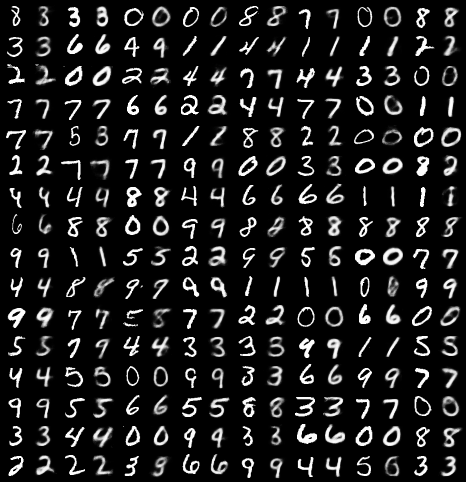 8 3 3 3 0 0 0 0 8 8 7 7 0 0 8 8
3 3 6 6 4 9 1 1 4 4 1 1 1 1 2 2
2 2 0 0 2 2 4 4 7 7 4 4 3 3 0 0
7 7 7 7 6 6 2 2 4 4 7 7 0 0 1 1
7 7 5 3 7 7 1 1 8 8 2 2 0 0 0 0
2 2 7 7 7 7 9 9 0 0 3 3 0 0 8 2
4 4 4 4 8 8 4 4 6 6 6 6 1 1 1 1
6 6 8 8 0 0 9 9 8 8 8 8 8 8 8 8
9 9 1 1 5 5 2 2 9 9 5 6 0 0 7 7
4 4 8 8 9 7 9 9 1 1 1 1 0 9 9
9 9 7 7 5 8 7 7 2 2 0 0 6 6 0 0
5 5 7 9 4 4 3 3 3 3 9 9 1 1 5 5
4 4 5 5 0 0 9 9 3 3 6 6 9 9 7 7
9 9 5 5 6 6 5 5 8 8 3 3 7 7 0 0
3 3 4 4 0 0 9 9 3 3 6 6 0 0 8 8
2 2 2 2 3 9 6 6 9 9 4 4 5 6 3 3